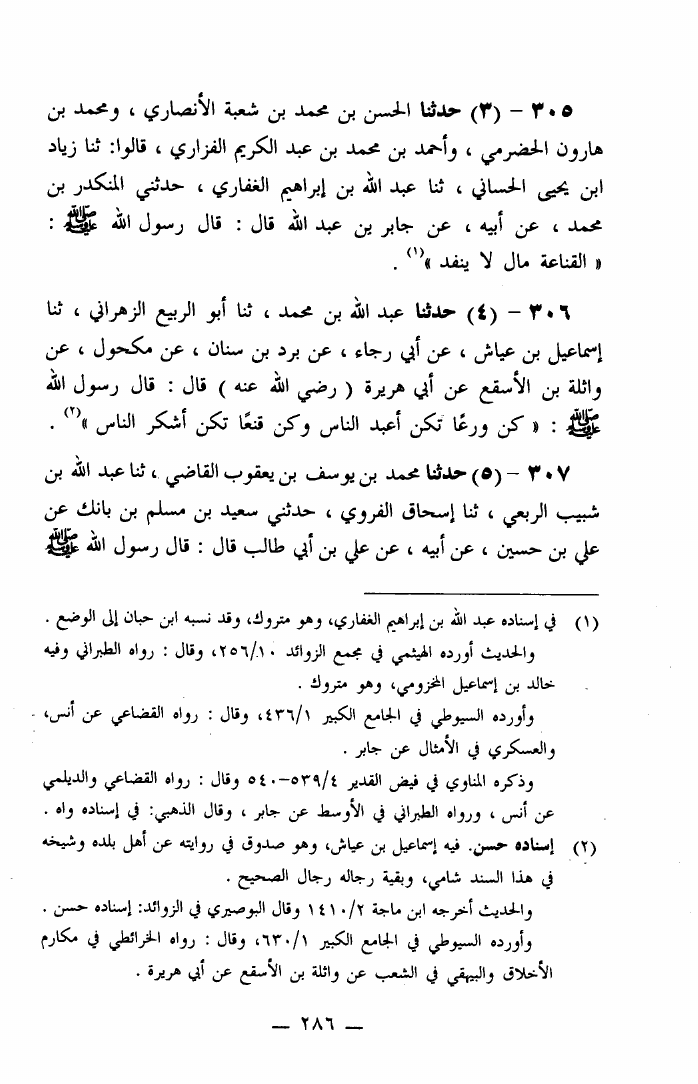 ٣٠٥ - (٣) حدثنا الحسن بن محمد بن شعبة الأنصاري ، ومحمد بن
هارون الحضرمي ، وأحمد بن محمد بن عبد الكريم الفزاري ، قالوا: ثنا زياد
ابن يحيى الحساني ، ثنا عبد الله بن إبراهيم الغفاري ، حدثني المنكدر بن
محمد ، عن أبيه ، عن جابر بن عبد الله قال : قال رسول الله ﷺ :
« القناعة مال لا ينفد »(١) .
٣٠٦ - (٤) حدثنا عبد الله بن محمد ، ثنا أبو الربيع الزهراني ، ثنا
إسماعيل بن عياش ، عن أبي رجاء ، عن برد بن سنان ، عن مكحول ، عن
واثلة بن الأسقع عن أبي هريرة ( رضي الله عنه ) قال : قال رسول الله
ﷺ : « كن ورعًا تكن أعبد الناس وكن قنعًا تكن أشكر الناس »(٢) .
٣٠٧ - (٥) حدثنا محمد بن يوسف بن يعقوب القاضي ، ثنا عبد الله بن
شبيب الربعي ، ثنا إسحاق الفروي ، حدثني سعيد بن مسلم بن بانك عن
علي بن حسين ، عن أبيه ، عن علي بن أبي طالب قال : قال رسول الله ﷺ
(١) في إسناده عبد الله بن إبراهيم الغفاري، وهو متروك، وقد نسبه ابن حبان إلى الوضع .
والحديث أورده الهيثمي في مجمع الزوائد ٢٥٦/١٠، وقال : رواه الطبراني وفيه
خالد بن إسماعيل المخزومي، وهو متروك .
وأورده السيوطي في الجامع الكبير ٤٣٦/١، وقال : رواه القضاعي عن أنس،
والعسكري في الأمثال عن جابر .
وذكره المناوي في فيض القدير ٥٣٩/٤-٥٤٠ وقال : رواه القضاعي والديلمي
عن أنس ، ورواه الطبراني في الأوسط عن جابر ، وقال الذهبي: في إسناده واه .
(٢) إسناده حسن. فيه إسماعيل بن عياش، وهو صدوق في روايته عن أهل بلده وشيخه
في هذا السند شامي، وبقية رجاله رجال الصحيح .
والحديث أخرجه ابن ماجة ١٤١٠/٢ وقال البوصيري في الزوائد: إسناده حسن .
وأورده السيوطي في الجامع الكبير ٦٣٠/١، وقال : رواه الخرائطي في مكارم
الأخلاق والبيهقي في الشعب عن واثلة بن الأسقع عن أبي هريرة .
— ٢٨٦ —